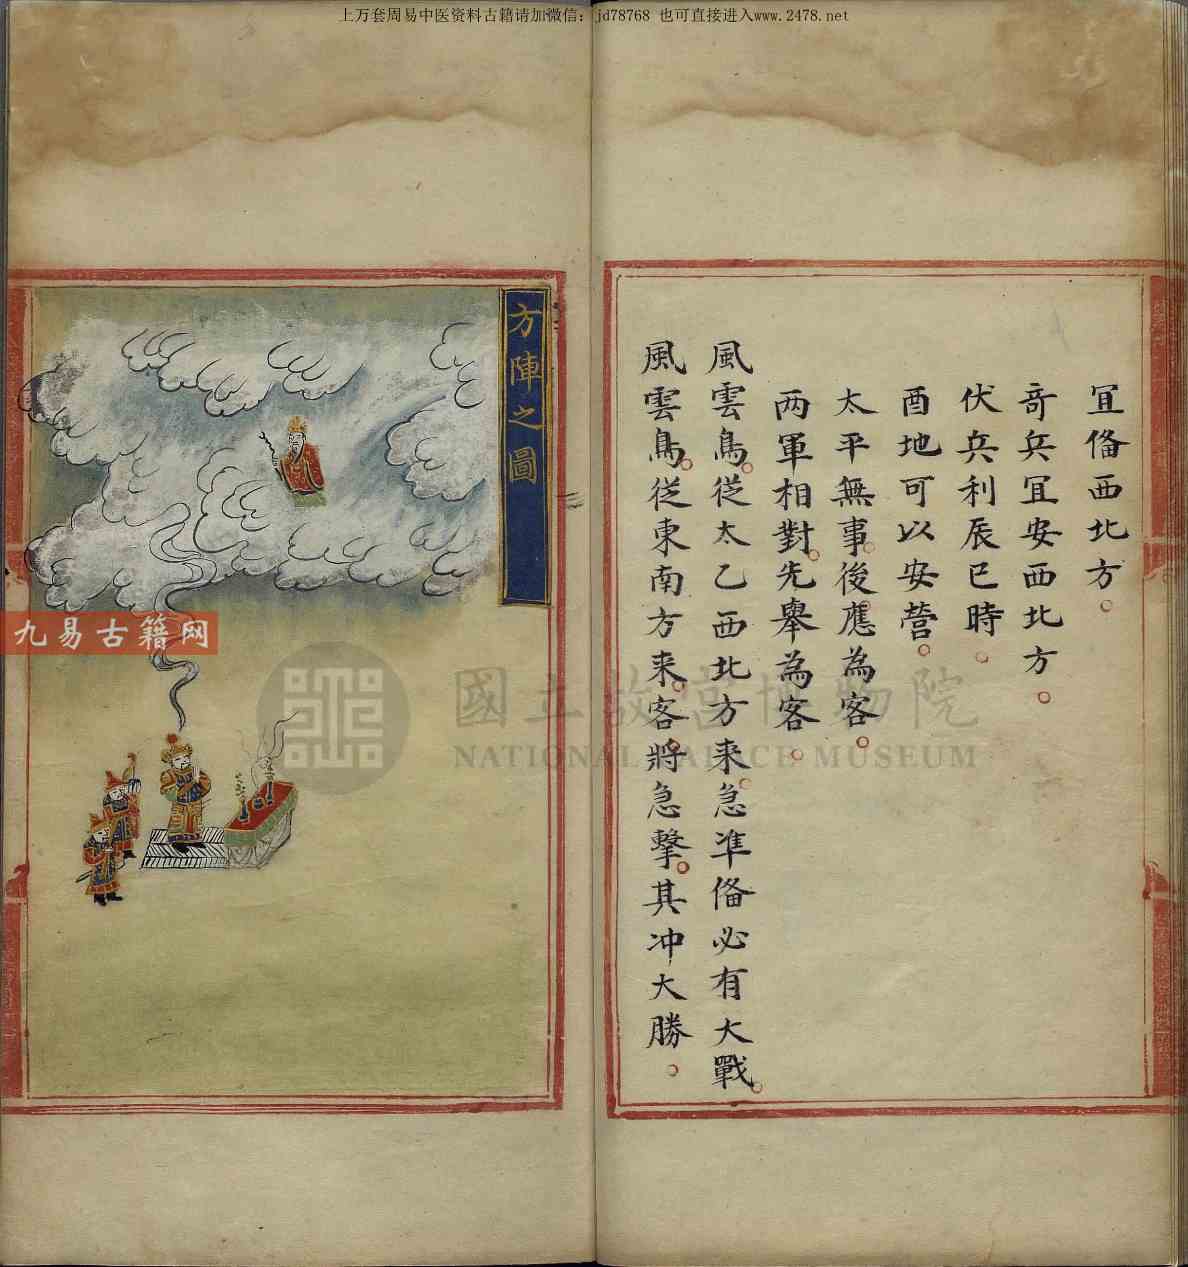 上万套周易中医资料古籍请加微信：jd78768 也可直接进入www.2478.net
宜俻西北方。
竒兵宜安西北方。
伏兵利辰巳時。
酉地可以安營。
太平無事。後應為客。
两軍相對。先舉為客。
風雲鳥。從太乙西北方来。急准俻必有大戰。
風雲鳥。從東南方来。客將急擊。其冲大勝。
方陣之圖
九易古籍网
國立故宮博物院
NATIONAL PALACE MUSEUM